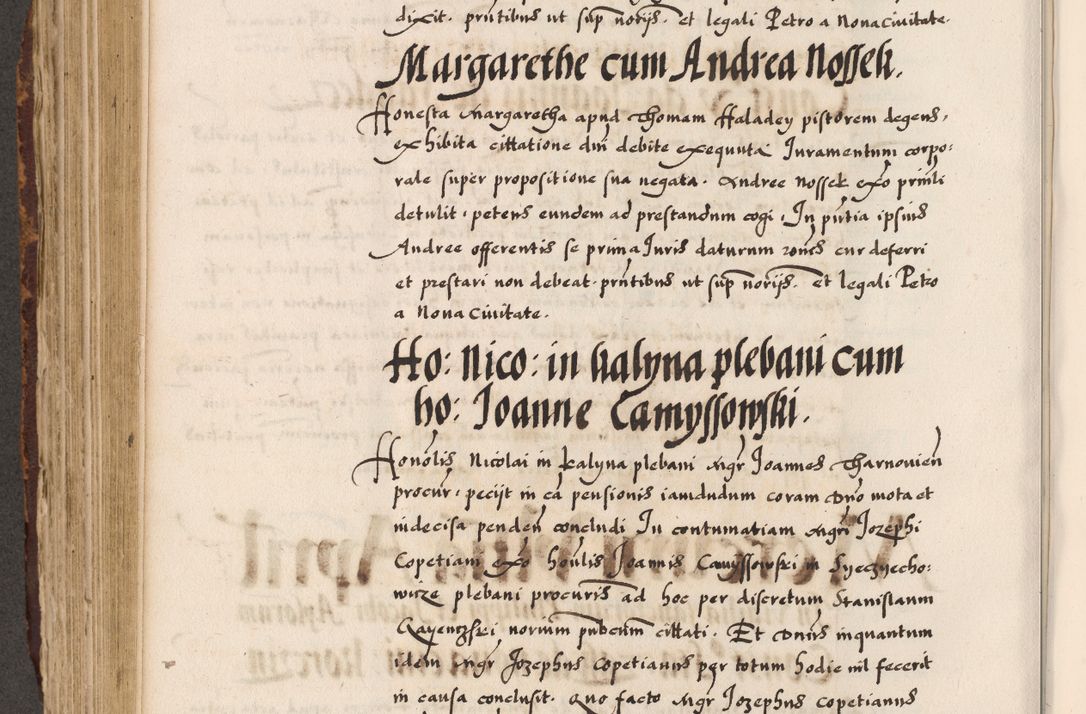 dixit. pntibus ut sup norijs. et legali Petro a Nonacivitate.
Margarethe cum Andrea Nossek.
Honesta Margaretha apud Thomam Haladey pistorem degens,
exhibita cittatione dni debite exequuta Iuramentum corpo:
rale super propositione sua negata. Andree Nossek exo prinli
detulit, petens eundem ad prestandum cogi. In pntia ipsius
Andree offerentis se prima Iuris daturum rones cur deferri
et prestari non debeat. pntibus ut sup norijs. et legali Petro
a Nona Civitate.
Ho: Nico: in kalyna plebani cum
ho: Joanne Camyssowski.
Honolis Nicolai in kalyna plebani Mgr Joannes Tharnovien
procur. pecijt in ca pensionis iamdudum coram Dno mota et
indecisa penden concludi In contumatiam Mgri Jozephi
Copetiani exo honlis Joannis Camyssowski in Syeczyecho:
wicze plebani procuris ad hoc per discretum Stanislaum
norium pubcum cittati. Et Dnus inquantum
idem Mgr Jozephus Copetianus per totum hodie nil fecerit
in causa conclusit. Quo facto Mgr Jozephus Copetianus